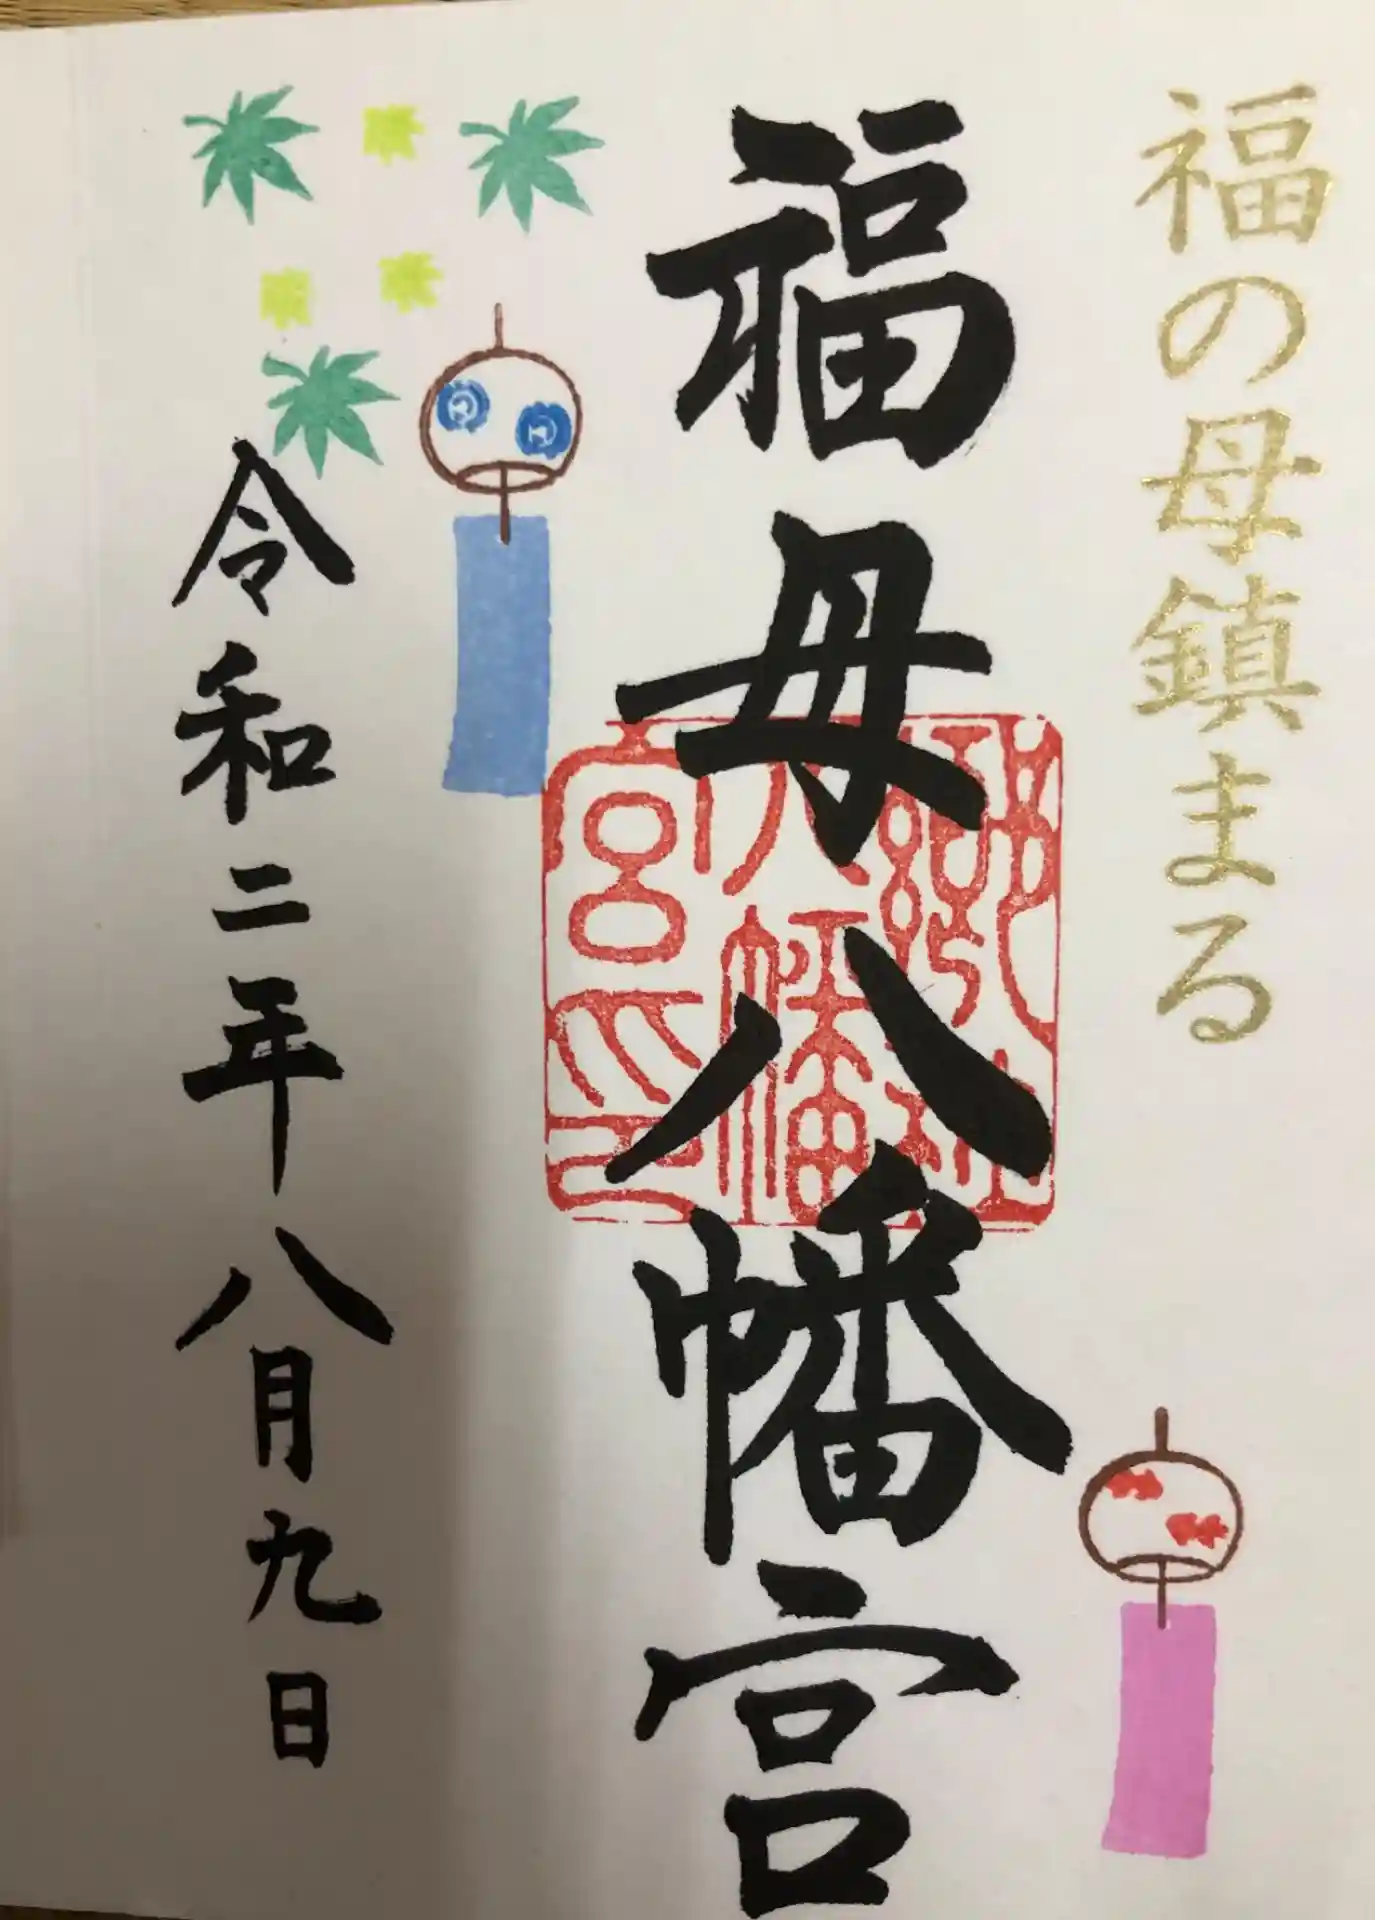 福の母鎮まる
福母八幡宮
郷社
八幡
宮印
令和二年八月九日